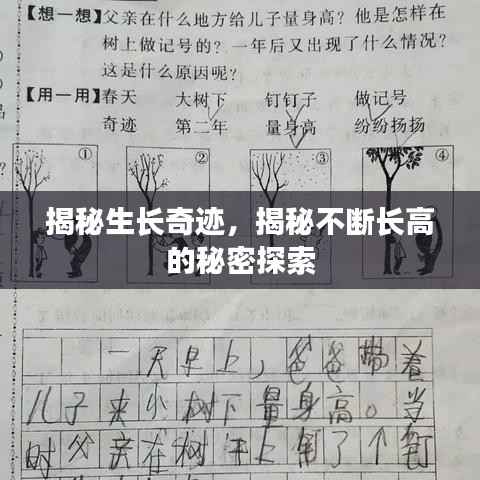 【想一想】父亲在什么地方给儿子量身高？他是怎样在
树上做记号的？一年后又出现了什么情况？
这是什么原因呢？
【用一用】春天 大树下 钉钉子 做记号
奇迹 第二年 量身高 纷纷扬扬
① ② ③ ④
揭秘生长奇迹，揭秘不断长高
的秘密探索
一天早上，爸爸带着
儿子来小树下量身高。当
时父亲在树干上钉了个钉